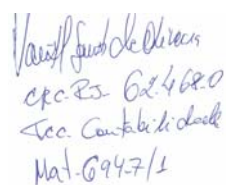 de Oliveira
CRC-RJ- 62.468-0
Tec. Contabilidade
Mat-694-7/1